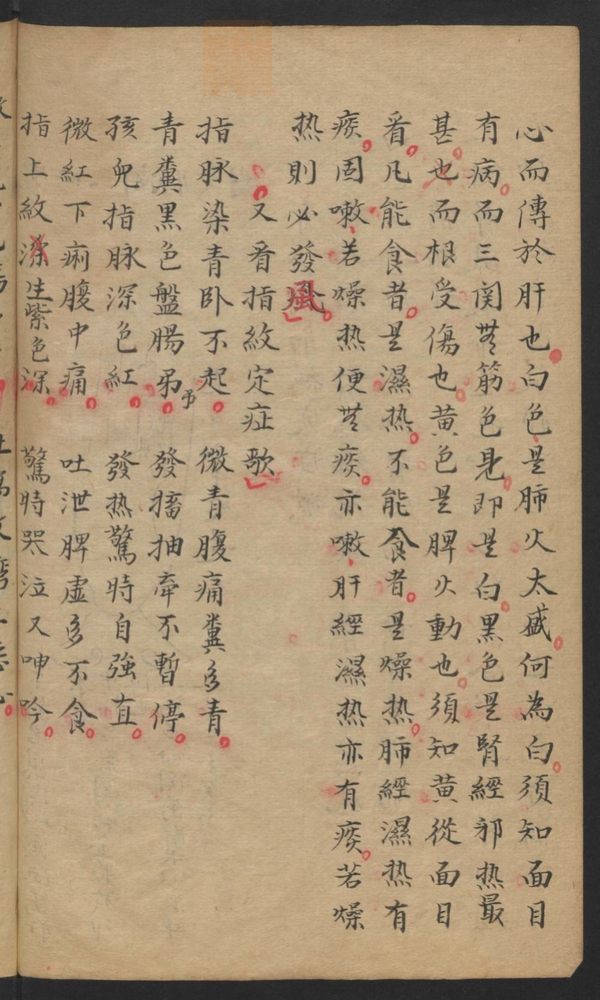 心而傳於肝也白色是肺火太盛何為白須知面目
有病而三関無筋色見即是白黑色是腎經邪热最
甚也而根受傷也黄色是脾火動也須知黄從面目
看凡能食者是濕热不能食者是燥热肺經濕热有
痰固嗽若燥热便無痰亦嗽肝經濕热亦有痰若燥
热則必發風
又看指紋定症歌
指脉染青卧不起 微青腹痛糞多青
青糞黑色盤腸吊 發搐抽牽不暫停
孩兒指脉深色紅 發热驚時自強直
微紅下痢腹中痛 吐泄脾虚多不食
指上紋生紫色深 驚時哭泣又呻吟